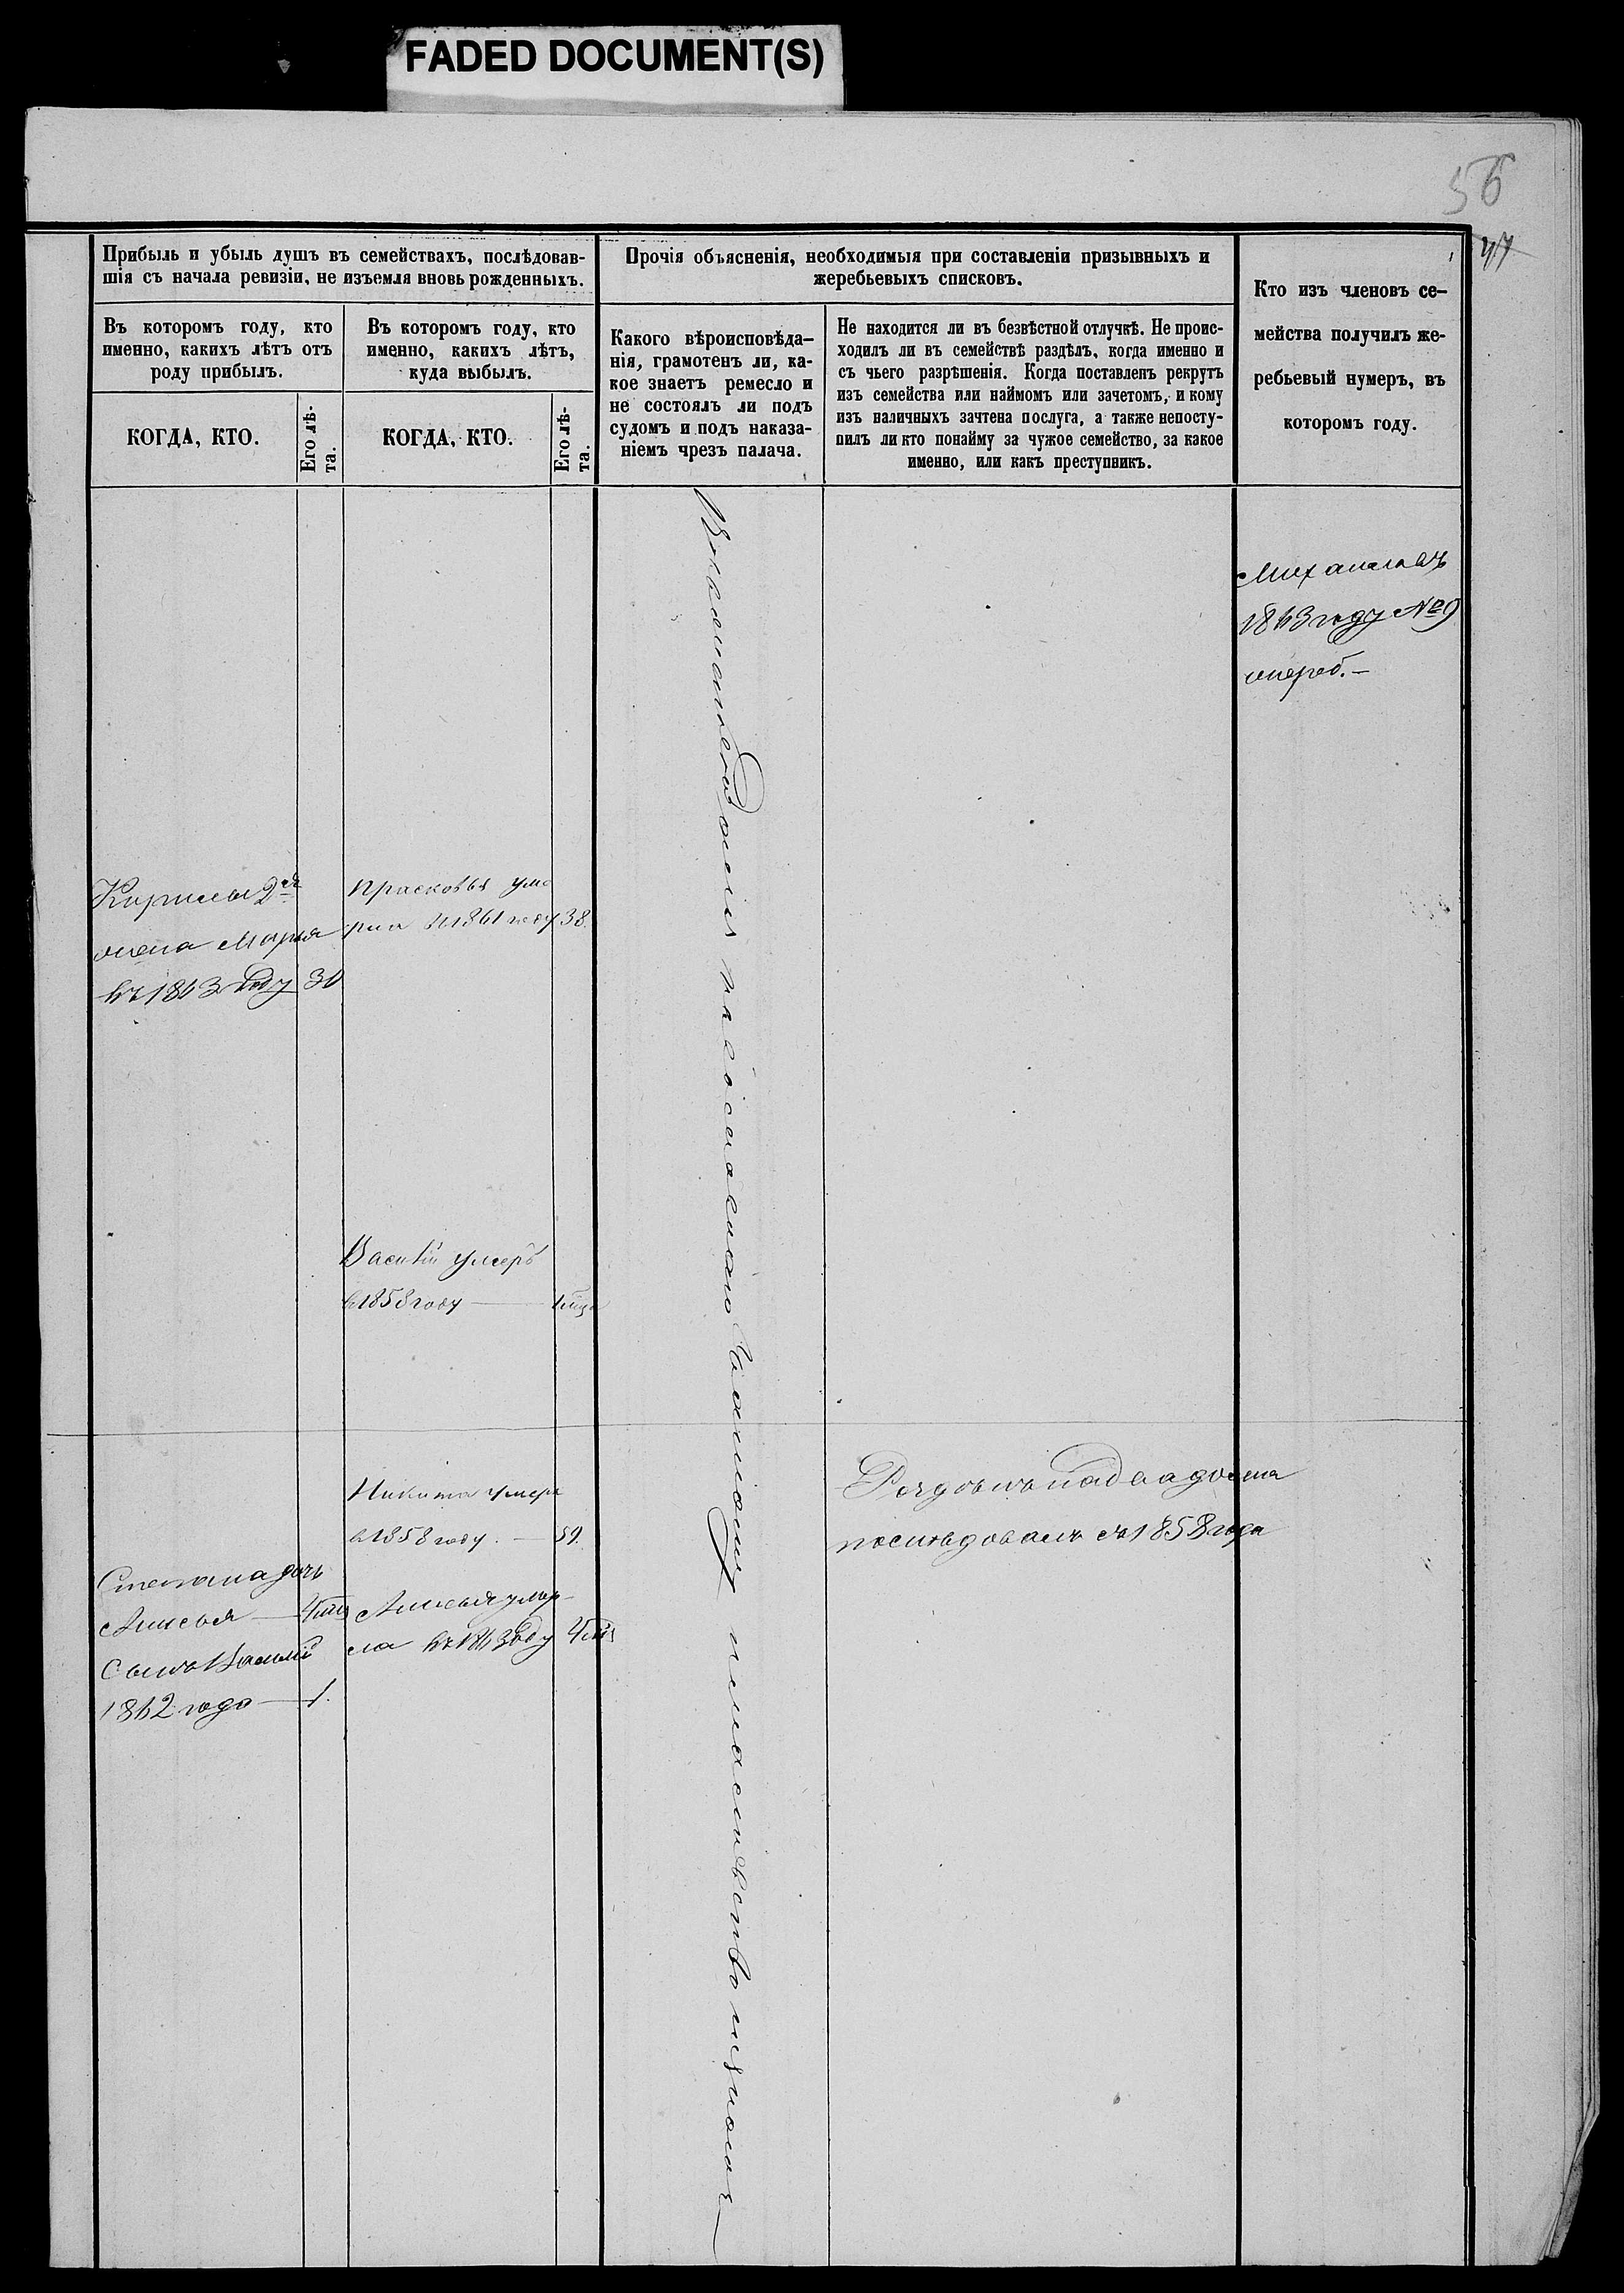 FADED DOCUMENT(S)
56
47
Прибыль и убыль душъ въ семействахъ, послѣдовав-
шія съ начала ревизіи, не изъемля вновь рожденныхъ.
Въ которомъ году, кто
именно, какихъ лѣтъ отъ
роду прибылъ.
КОГДА, КТО.
Его лѣ-
та.
Въ которомъ году, кто
именно, какихъ лѣтъ,
куда выбылъ.
КОГДА, КТО.
Его лѣ-
та.
Прочія объясненія, необходимыя при составленіи призывныхъ и
жеребьевыхъ списковъ.
Какого вѣроисповѣда-
нія, грамотенъ ли, ка-
кое знаетъ ремесло и
не состоялъ ли подъ
судомъ и подъ наказа-
ніемъ чрезъ палача.
Не находится ли въ безвѣстной отлучкѣ. Не проис-
ходилъ ли въ семействѣ раздѣлъ, когда именно и
съ чьего разрѣшенія. Когда поставленъ рекрутъ
изъ семейства или наймомъ или зачетомъ, и кому
изъ наличныхъ зачтена послуга, а также непосту-
пилъ ли кто понайму за чужое семейство, за какое
именно, или какъ преступникъ.
Кто изъ членовъ се-
мейства получилъ же-
ребьевый нумеръ, въ
которомъ году.
Михаилъ въ
1863 году №9
жереб.-
Кирилы 2я
жена Марья
въ 1863 году 30
Прасковья уме
рла в 1861 году 38.
Василій умеръ
в 1858 году
Никита умеръ
в 1858 году. — 59.
Степана дочь
Анисья
Сынъ Василій
1862 года — 1.
Анисья умер-
ла въ 1863 году
Раздѣлъ на два дома
послѣдовалъ съ 1858 года